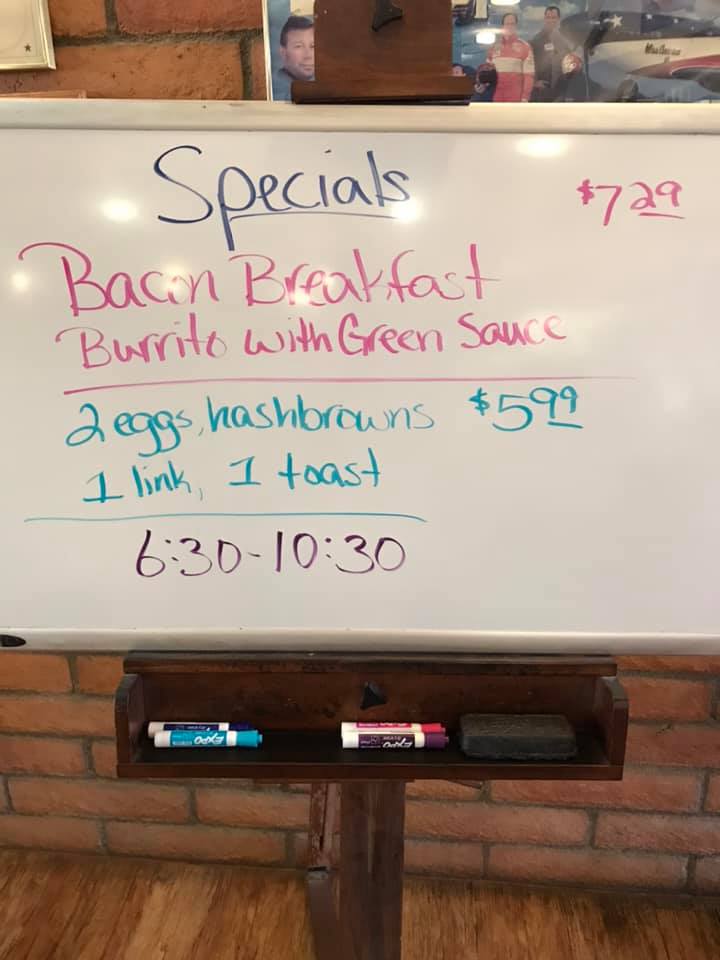 Specials
$7.29
Bacon Breakfast
Burrito with Green Sauce
2 eggs, hashbrowns $5.99
1 link, 1 toast
6:30-10:30
EXPO
EXPO